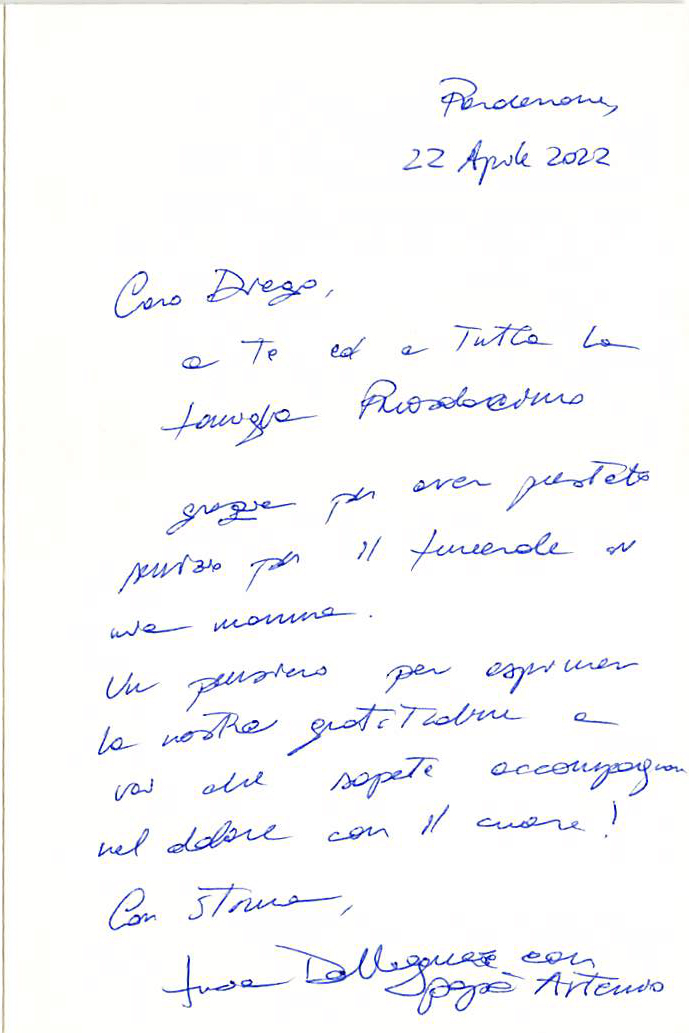 Pordenone,
22 Aprile 2022
Caro Diego,
a Te ed a Tutta la
famiglia Prosdocimo
grazie per aver prestato
servizio per il funerale di
mia mamma.
Un pensiero per esprimere
la nostra gratitudine a
voi che sapete accompagnare
nel dolore con il cuore!
Con stima,
con
papà Artemio